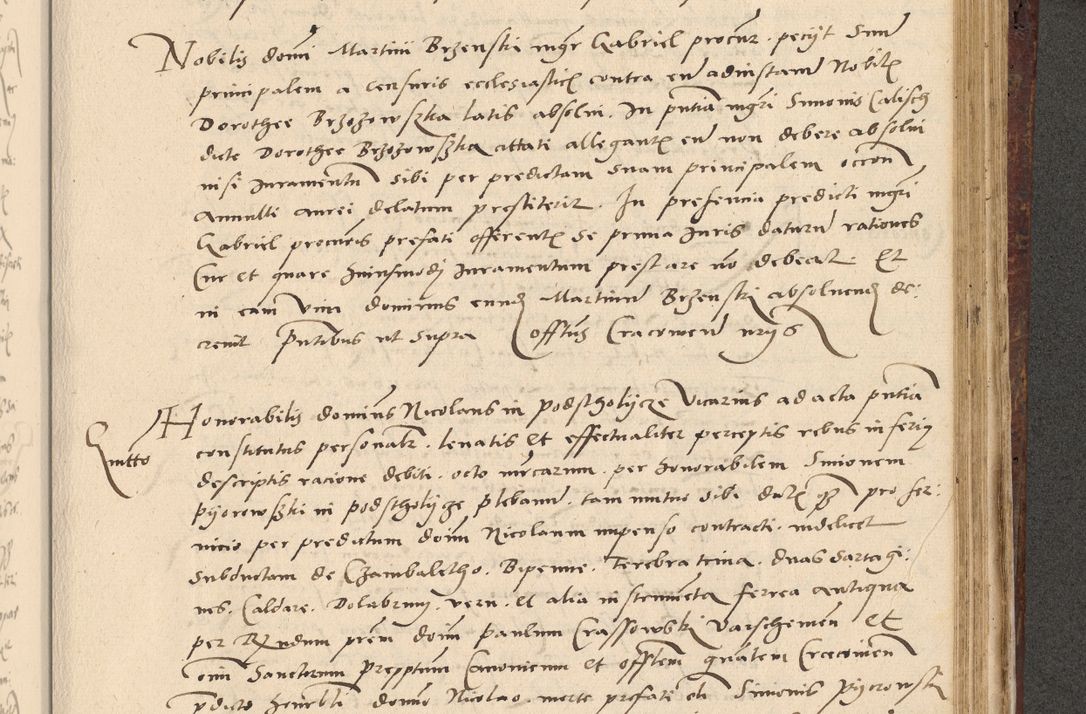 Nobilis domini Martini Brzenski mgr Gabriel procur. pecijt Suum
principalem a censuris ecclesiasticis contra eum ad instam Nobilis
Dorothee Brzozowszka latis absolui. In pntia mgri Simonis Calisch
dicte Dorothee Brzozowszka attati allegantis eum non debere absolui
nisi Juramentum sibi per predictam suam principalem occon
Annulli aurei delatum prestiterit. In presencia predicti mgri
Gabriel procuris prefati offerentis se prima Juris daturum rationes
Cur et quare huiusmodj Juramentum prestare no debeat Et
in eam vim dominus eundem Martinum Brzenskj absoluendum de:
creuit Pntibus ut supra Cracouien
Quitto
Honorabilis dominus Nicolaus in Podstholijcze vicarius ad acta pntia
constitutus personalr. leuatis et effectualiter perceptis rebus inferius
descriptis racione debiti. octo mrcarum. per honorabilem Simonem
Pijorowszki in Podstholijcze plebanum. tam mutuo sibi pro ser:
uicio per predictum domi Nicolaum impenso contracti. videlicet
Subductam de Czambaletho. Bipenne. Terebra trina. duas Sartagi:
nes. Caldare. Dolabrum. veru. et alia instrumeta ferrea antiqua
per prem domi Paulum Crassowskj Varschemen et
oim Sanctorum Prepptum Canonicum et offtem gnalem Cracouien
domino Nicolao. morte prefati oli Simonis Pijorowski